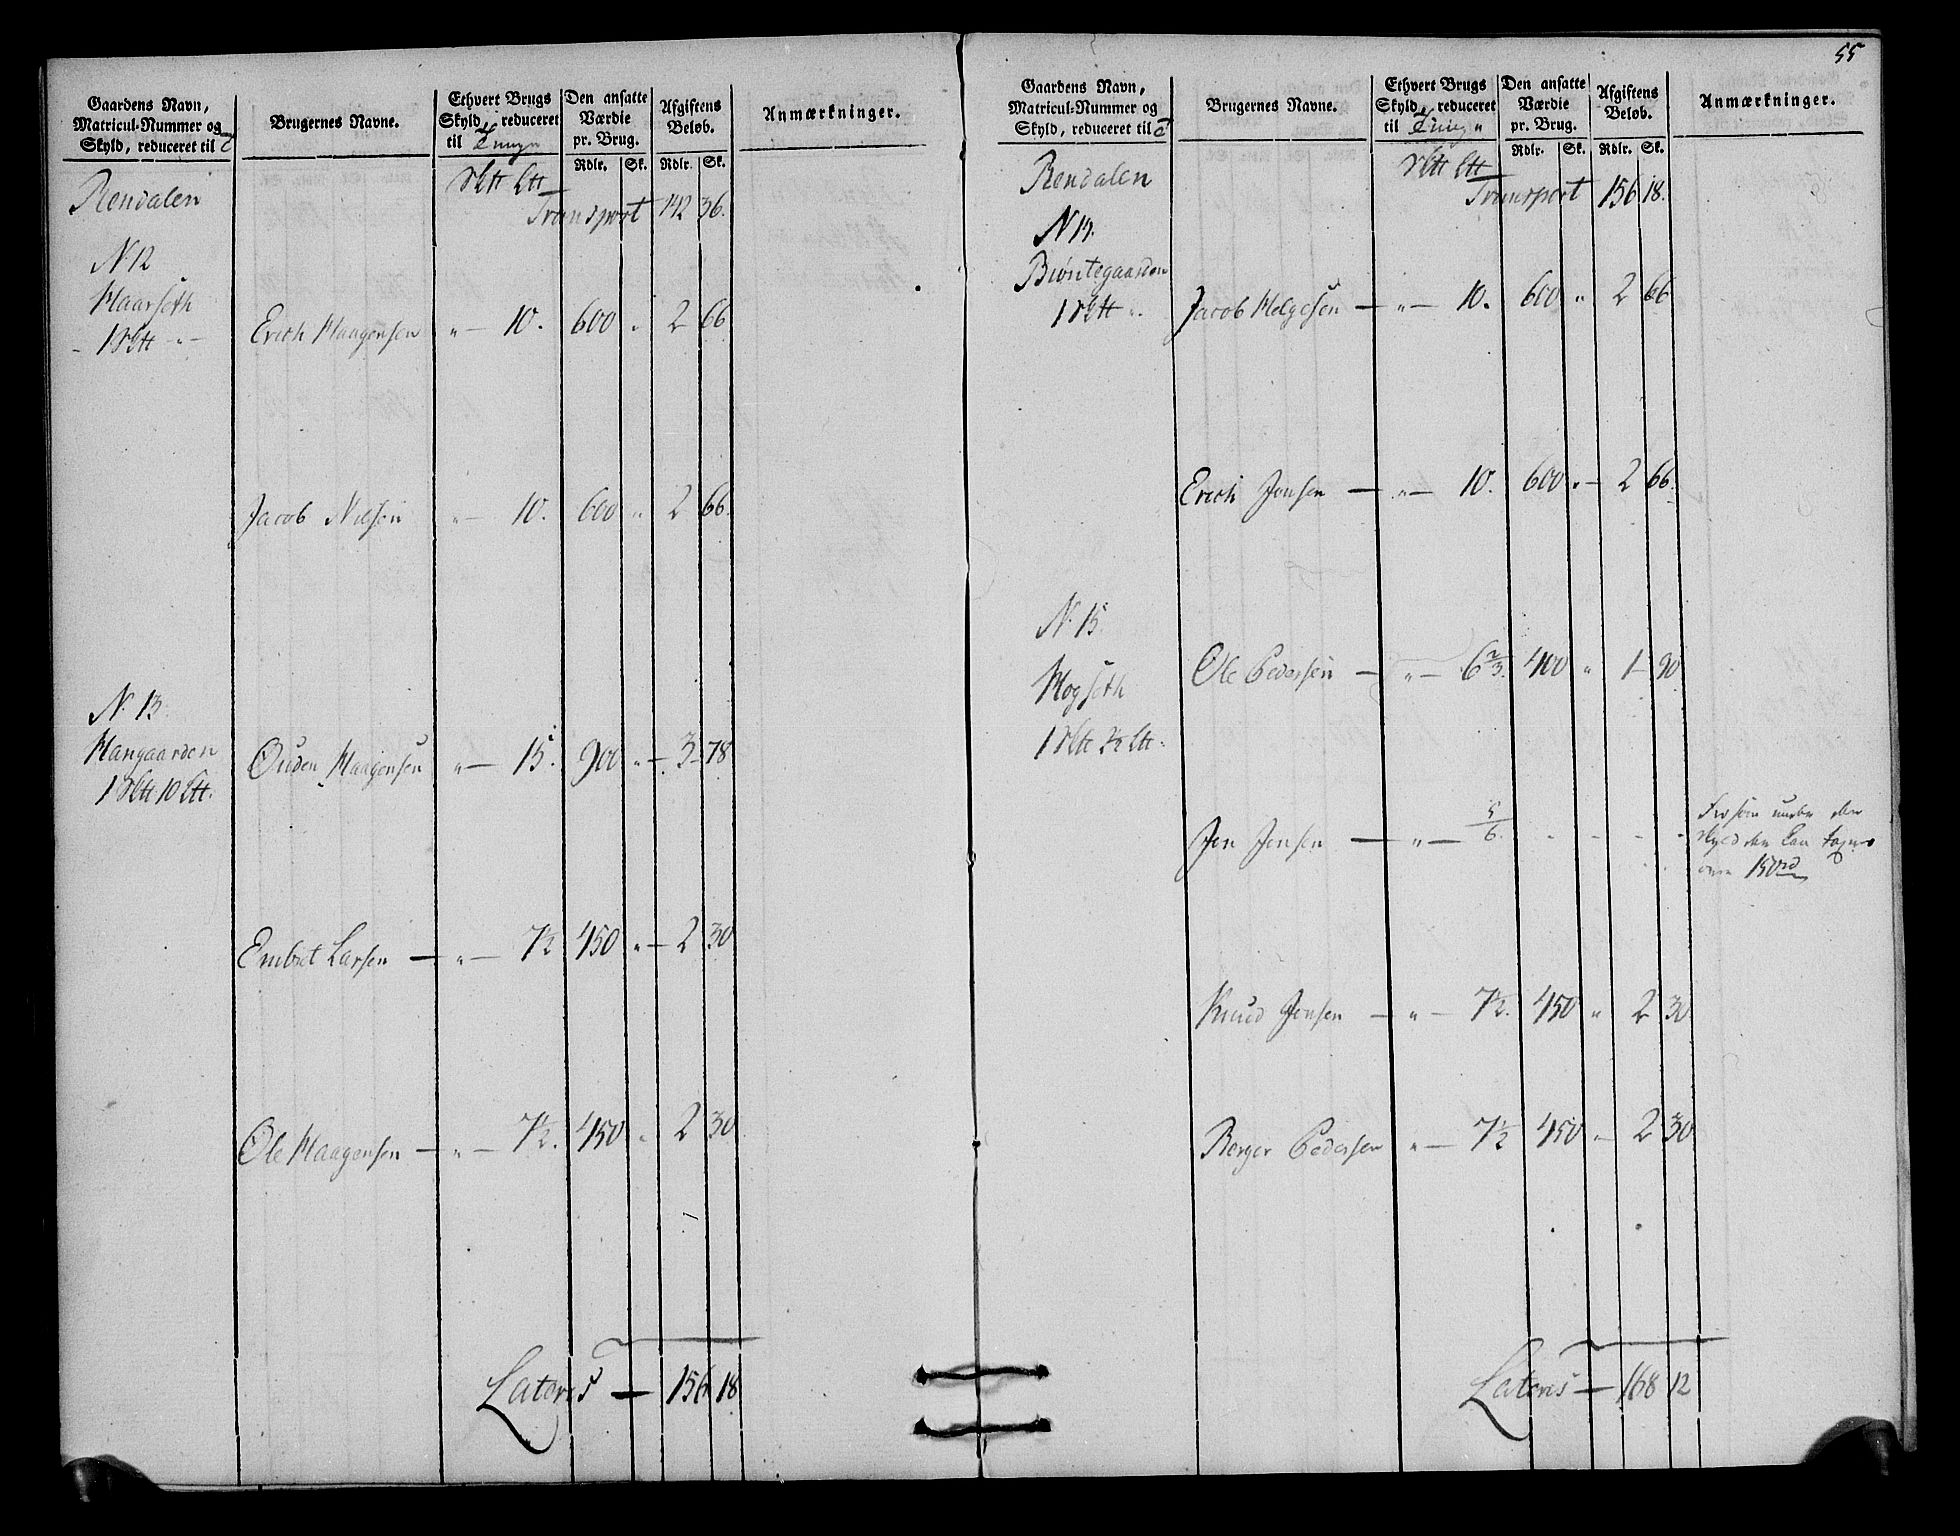 Gaardens Navn,
Matricul-Nummer og
Skyld, reduceret til
Brugernes Navne.
Ethvert Brugs
Skyld, reduceret
til Tunge
Den ansatte
Værdie
pr. Brug.
Rdlr. Sk.
Afgiftens
Beløb.
Rdlr. Sk.
Anmærkninger.
Rendalen
Transport 142 36.
N 12
Haarseth
Erich Haagensen " 10. 600 " 2 66
Jacob Nilsen " 10. 600 " 2 66.
N. 13.
Hangaarden
Ouden Haagensen " 15. 900 " 3 78
Embret Larsen " 7½ 450 " 2 30
Ole Haagensen " 7½. 450 " 2 30
Lateris 156 18
55
Gaardens Navn,
Matricul-Nummer og
Skyld, reduceret til
Brugernes Navne.
Ethvert Brugs
Skyld, reduceret
til Tunge
Den ansatte
Værdie
pr. Brug.
Rdlr. Sk.
Afgiftens
Beløb.
Rdlr. Sk.
Anmærkninger.
Rendalen
Transport 156 18.
Jacob Helgesen " 10. 600 " 2 66
Erich Jonsen " 10. 600 " 2 66.
N. 15
Hogseth
Ole Pedersen " 6⅔. 400 " 1 90
Jon Jonsen " 5/6.
Knud Jonsen " 7½. 450 " 2 30
Berger Pedersen " 7½ 450 2 30
Lateris 168 12